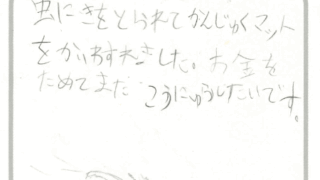 虫にきをとられてかんじゅくマット
をかいわすれました。お金を
ためてまたこうにゅうしたいです。